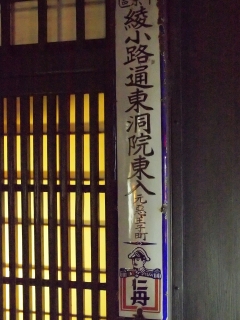 綾小路通東洞院東入
元悪王子町
仁丹